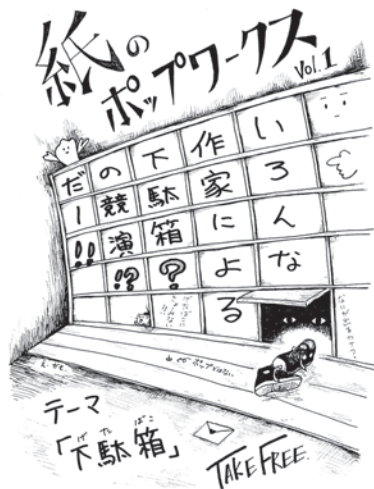 紙の
ポップワークス
Vol.1
いろんな
作家による
下駄箱?
の競演!?
だー!!
テーマ
げたばこ
「下駄箱」
TAKE FREE.